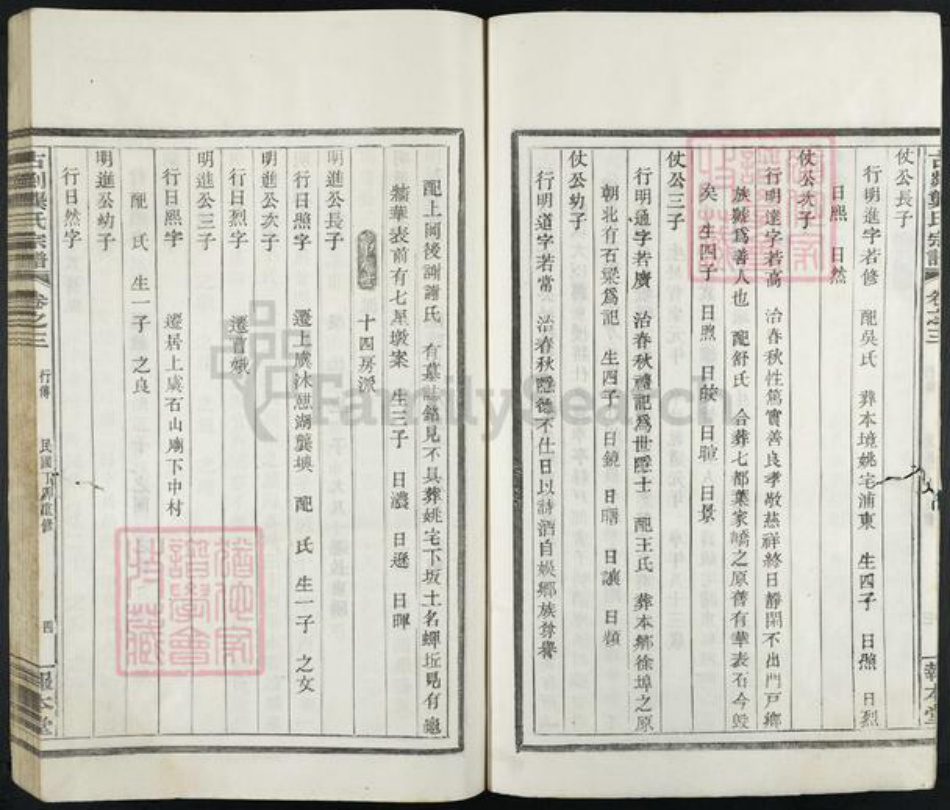 仗公長子
行明進字若修 配吳氏 葬本境姚宅浦東 生四子 日照 日烈
日熙 日然
仗公次子
行明達字若高 治春秋性篤實善良孝敬慈祥終日靜閑不出門戶鄉
族號爲善人也 配舒氏 合葬七都葉家嶠之原舊有華表石今毀
矣 生四子 日煦 日皎 日暄 日景
仗公三子
行明通字若廣 治春秋禮記爲世隱士 配王氏 葬本鄉徐埠之原
朝北有石梁爲記 生四子 日鏡 日曙 日讓 日頻
仗公幼子
行明道字若常 治春秋隱德不仕日以詩酒自娛鄉族尊譽
古剡龔氏宗譜 卷之三
報本堂
配上閔後謝謝氏 有墓誌銘見不具葬姚宅下坂土名蟬坵見有
華表前有七星墩案 生三子 日濃 日遜 日暉
十四房派
明進公長子
行日照字 遷上虞沐麒湖龔墺 配 氏 生一子 之文
明進公次子
行日烈字 遷曹娥
明進公三子
行日熙字 遷居上虞石山廟下中村
配 氏 生一子 之良
明進公幼子
行日然字
古剡龔氏宗譜 卷之三 行傳 民國 重修 四 報本堂
FamilySearch